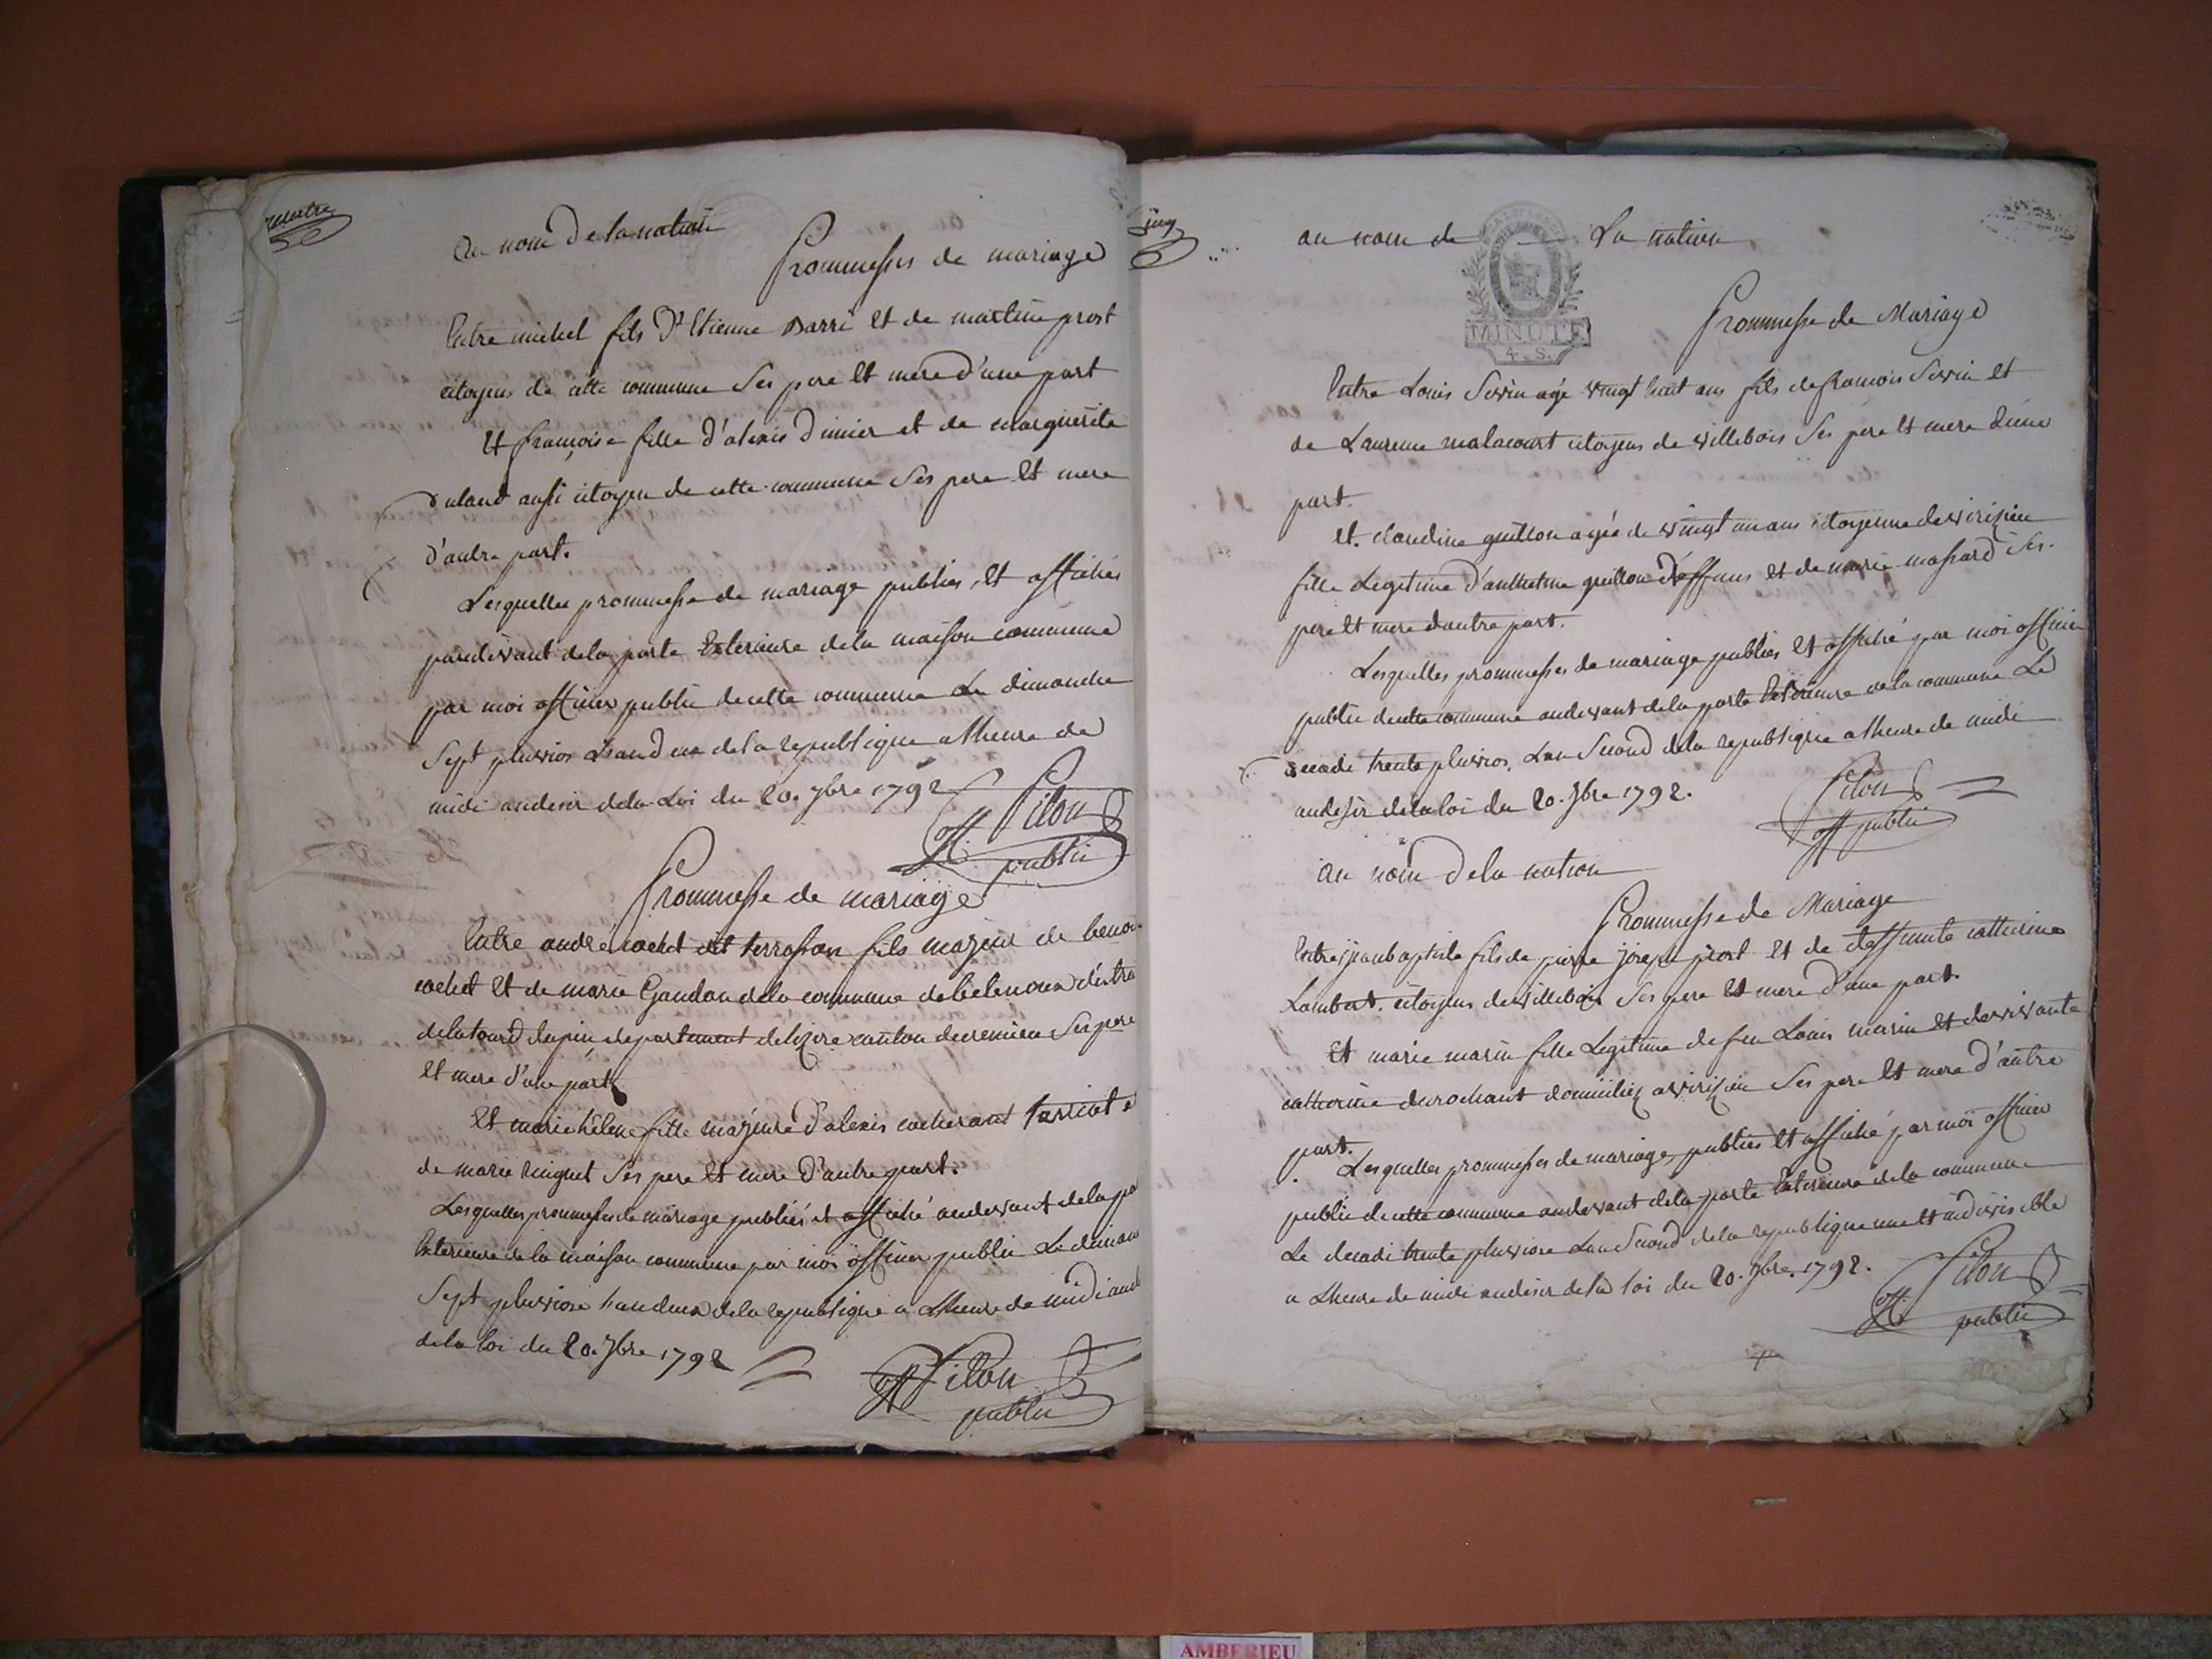 quatre
au nom de la nation
Prommesses de mariage
Entre michel fils d'Etienne Barri et de martine prost
citoyens de cette commune Ses pere et mere d'une part
et françoise fille d'alexis dimier et de marguerite
aussi citoyen de cette commune Ses pere et mere
d'autre part.
Lesquelles prommesse de mariage publies et affichés
pardevant de la porte Exterieure de la maison commune
par moi officier public de cette commune Le dimanche
Sept pluvios L'an deux de la republique a lheure de
midi au desir de la Loi du 20. 7bre 1792
Pilon
off public
Prommesse de mariage
Entre andré cochet dit terrasson fils majeur de benoi
cochet et de marie Gandon de la commune de
de la tour du pin departement de lizere canton de cremieu Ses pere
et mere d'une part
Et marie hélene fille majeure d'alexis
de marie Ringuet Ses pere et mere d'autre part.
Lesquelles prommesses de mariage publiés et affiché audevant de la po
Exterieure de la maison commune par moi officier public Le diman
Sept pluviose Lan deux de la republique a Lheure de midi au
de la loi du 20. 7bre 1792
Pilon
off public
cinq
au nom de La nation
MINUTE
4. S.
Prommesse de Mariage
Entre Louis Serin agé vingt huit ans fils de francois Serin et
de Laurence malacourt citoyens de villebois Ses pere et mere dune
part.
et. claudine guillon agée de vingt un ans citoyenne de virizieu
fille Legitime d'anthelme guillon deffuns et de marie massard Ses.
pere et mere d'autre part.
Lesquelles prommesses de mariage publies et affiché par moi officier
public de cette commune audevant de la porte Exterieure de la commune Le
decadi trente pluvios. Lan Second de la republique a lheure de midi
au desir de la loi du 20. 7bre 1792.
Pilon
off public
au nom de la nation
Prommesse de Mariage
Entre jean baptiste fils de pierre joseph prost et de deffunte catherine
Lambert. citoyens de villebois Ses pere et mere d'une part.
Et marie marin fille Legitime de feu Louis marin et de vivante
catherine durochant domiciliez a virizieu Ses pere et mere d'autre
part.
Lesquelles prommesses de mariage, publies et affiché par moi officier
public de cette commune audevant de la porte Exterieure de la commune
Le decadi trente pluviose Lan Second de la republique une et indivisible
a Lheure de midi au desir de la loi du 20. 7bre. 1792.
Pilon
off public
AMBERIEU